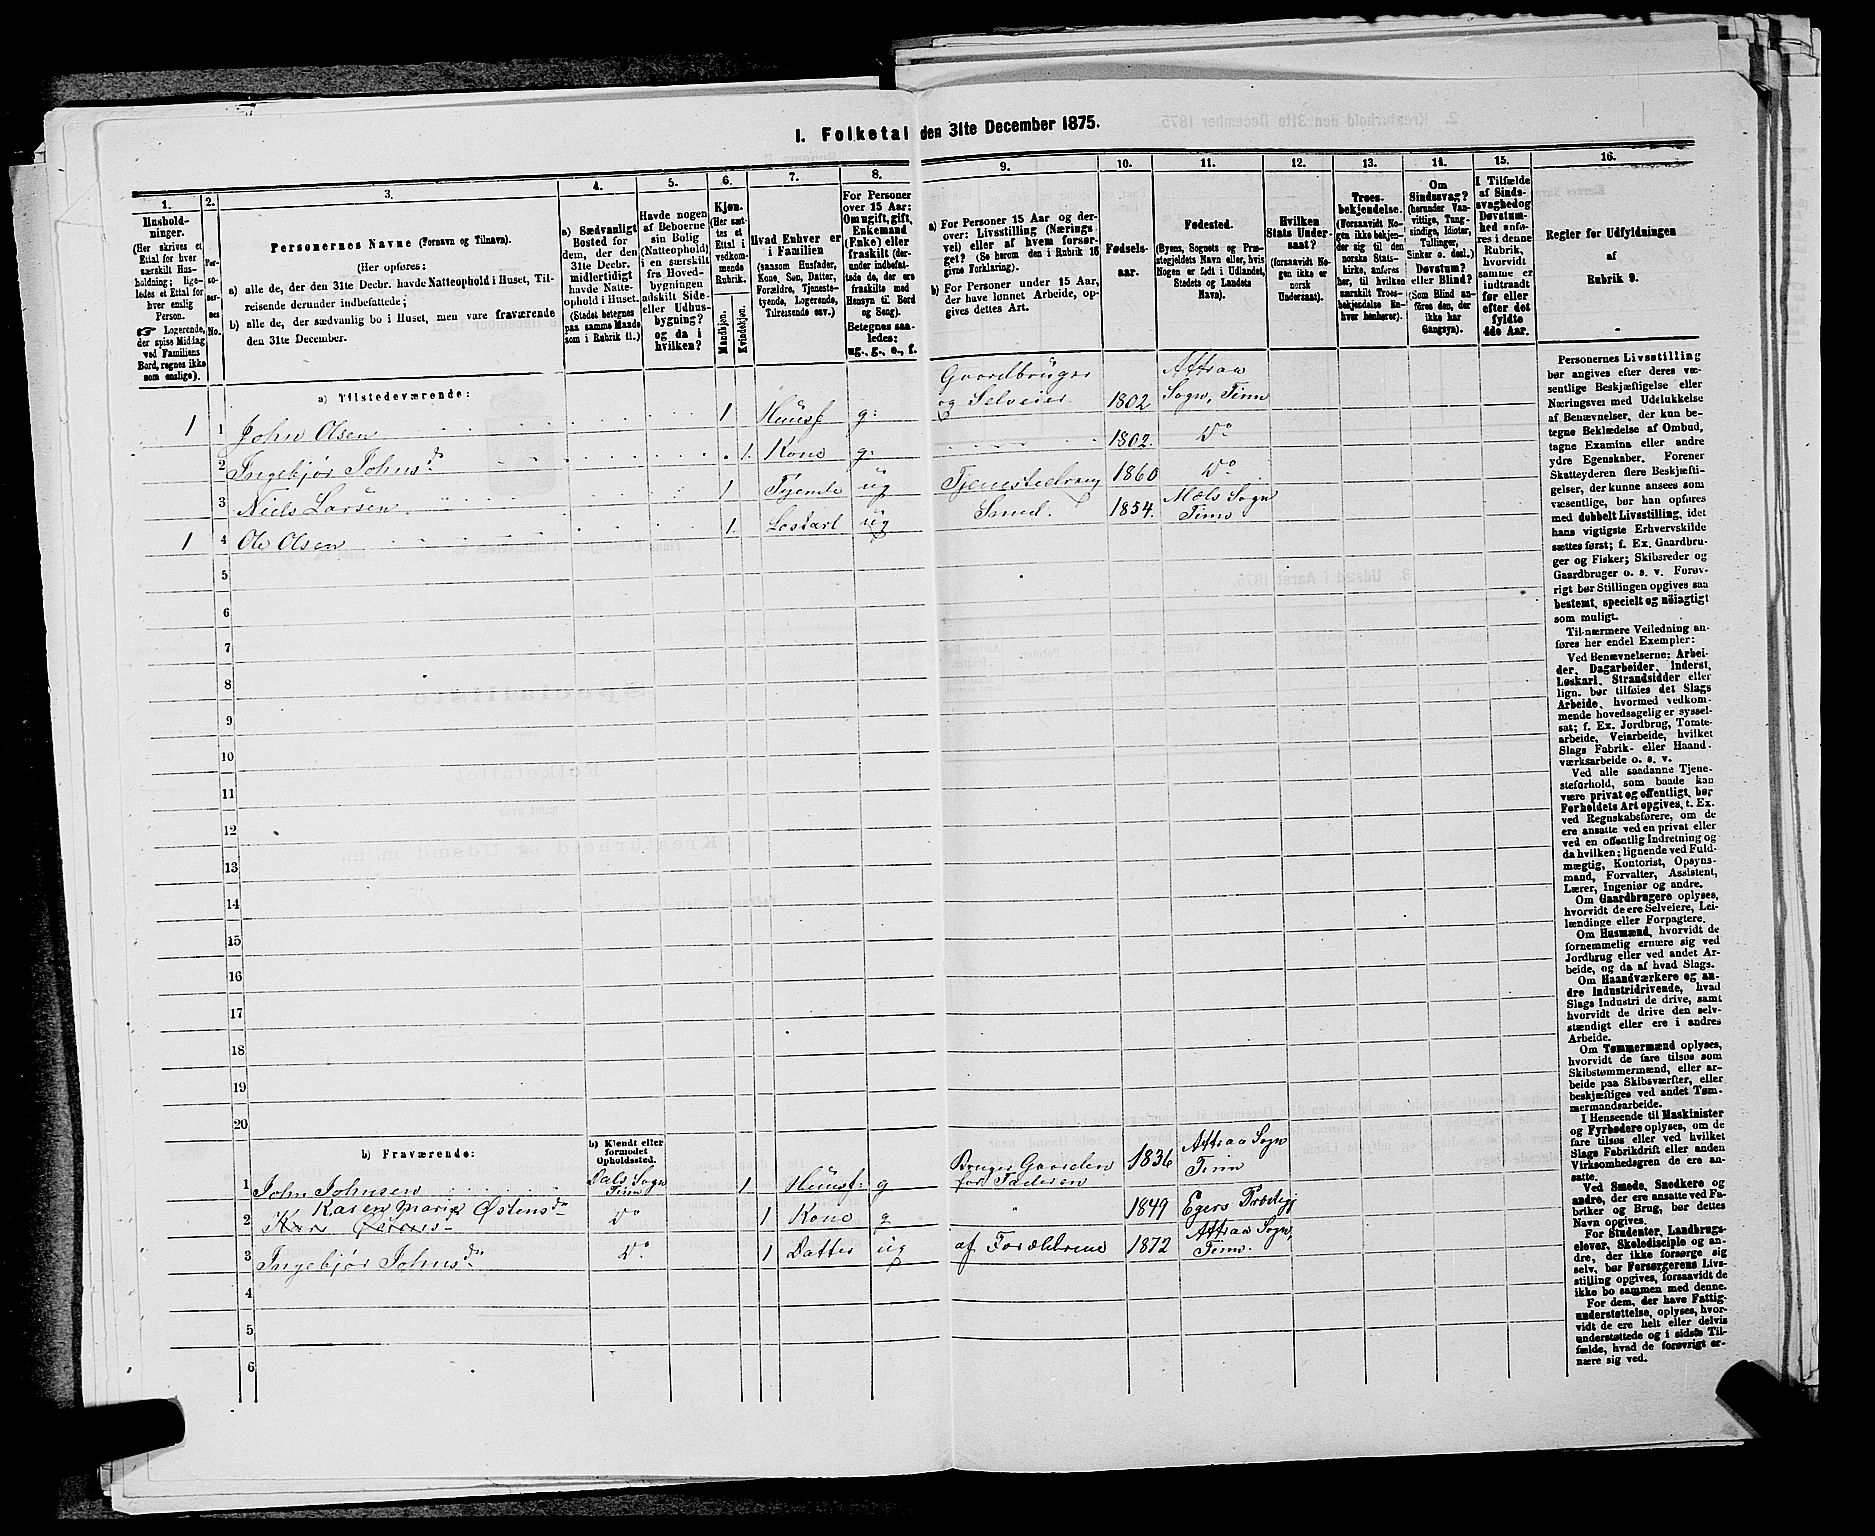 I. Folketal den 31te December 1875.
1.
Hushold-
ninger.
(Her skrives et
Ettal for hver
særskilt Hus-
holdning; lige-
ledes et Ettal for
hver enslig
Person.
☞ Logerende,
der spise Middag
ved Familiens
Bord, regnes ikke
som enslige).
2.
Per-
so-
ner-
nes
No.
3.
Personernes Navne (Fornavn og Tilnavn).
(Her opføres:
a) alle de, der den 31te Decbr. havde Natteophold i Huset, Til-
reisende derunder indbefattede;
b) alle de, der sædvanlig bo i Huset, men vare fraværende
den 31te December.
4.
a) Sædvanligt
Bosted for
dem, der den
31te Decbr.
midlertidigt
havde Natte-
ophold i Huset.
(Stedet betegnes
paa samme Maade
som i Rubrik 11.)
5.
Havde nogen
af Beboerne
sin Bolig
(Natteophold)
i en særskilt
fra Hoved-
bygningen
adskilt Side-
eller Udhus-
bygning?
og da i
hvilken?
6.
Kjøn.
(Her sæt-
tes et
Ettal i
vedkom-
mende
Rubrik.
Mandkjøn.
Kvindekjøn.
7.
Hvad Enhver er
i Familien
(saasom Husfader,
Kone, Søn, Datter,
Forældre, Tjeneste-
tyende, Logerende,
Tilreisende osv.)
8.
For Personer
over 15 Aar:
Om ugift, gift,
Enkemand
(Enke) eller
fraskilt (der-
under indbefat-
tede de, der ere
fraskilte med
Hensyn til Bord
og Seng).
Betegnes saa-
ledes:
ug., g., e., f.
9.
a) For Personer 15 Aar og der-
over: Livsstilling (Nærings-
vei) eller af hvem forsør-
get? (Se herom den i Rubrik 16
givne Forklaring).
b) For Personer under 15 Aar,
der have lønnet Arbeide, op-
gives dettes Art.
10.
Fødsels-
aar.
11.
Fødested.
(Byens, Sognets og Præ-
stegjeldets Navn eller, hvis
Nogen er født i Udlandet,
Stedets og Landets
Navn).
12.
Hvilken
Stats Under-
saat?
(forsaavidt No-
gen ikke er
norsk
Undersaat).
13.
Troes-
bekjendelse.
(Forsaavidt No-
gen ikke bekjen-
der sig til den
norske Stats-
kirke, anføres
her, til hvilken
særskilt Troes-
bekjendelse En-
hver henhører).
14.
Om
Sindssvag?
(herunder Van-
vittige, Tung-
sindige, Idioter,
Tullinger,
Sinker o. desl.)
Døvstum?
eller Blind?
(Som Blind an-
føres den, der
ikke har
Gangsyn).
15.
I Tilfælde
af Sinds-
svaghed og
Døvstum-
hed anfø-
res i denne
Rubrik,
hvorvidt
samme er
indtraadt
før eller
efter det
fyldte
4de Aar.
16.
Regler for Udfyldningen
af
Rubrik 9.
a) Tilstedeværende:
1 1 John Olsen 1 Huusf g. Gaardbruger og Selveier. 1802 Attraa Sogn, Tinn
2 Ingebjør Johnsdr 1. Kone g. 1802. Do
3 Niels Larsen. 1 Tyende ug Tjenestedreng 1860 Do
1 4 Ole Olsen 1. Løskarl ug Smed. 1854. Mæls Sogn Tinn
5
6
7
8
9
10
11
12
13
14
15
16
17
18
19
20
b) Fraværende:
b) Kjendt eller
formodet
Opholdssted.
1 John Johnsen Dals Sogn Tinn 1 Huusf: g Bruger Gaarden for Faderen 1836 Attraa Sogn Tinn
Karen Marie Østensdr
2 Kari Do 1 Kone g " 1849 Egers Præstegj
3 Ingebjør Johnsdr Do 1 Datter ug af Forældrene 1872 Attraa Sogn, Tinn.
4
5
6
Personernes Livsstilling
bør angives efter deres væ-
sentlige Beskjæftigelse eller
Næringsvei med Udelukkelse
af Benævnelser, der kun be-
tegne Beklædelse af Ombud,
tagne Examina eller andre
ydre Egenskaber. Forener
Skatteyderen flere Beskjæfti-
gelser, der kunne ansees som
væsentlige, bør han opføres
med dobbelt Livsstilling, idet
hans vigtigste Erhvervskilde
sættes først; f. Ex. Gaardbru-
ger og Fisker; Skibsreder og
Gaardbruger o. s. v. Forøv-
rigt bør Stillingen opgives saa
bestemt, specielt og nøiagtigt
som muligt.
Til nærmere Veiledning an-
føres her endel Exempler:
Ved Benævnelserne: Arbei-
der, Dagarbeider, Inderst,
Løskarl, Strandsidder eller
lign. bør tilføies det Slags
Arbeide, hvormed vedkom-
mende hovedsagelig er syssel-
sat; f. Ex. Jordbrug, Tomte-
arbeide, Veiarbeide, hvilket
Slags Fabrik- eller Haand-
værksarbeide o. s. v.
Ved alle saadanne Tjene-
steforhold, som baade kan
være privat og offentligt, bør
Forholdets Art opgives, t. Ex.
ved Regnskabsførere, om de
ere ansatte ved en privat eller
ved en offentlig Indretning og
da hvilken; lignende ved Fuld-
mægtig, Kontorist, Opsyns-
mand, Forvalter, Assistent,
Lærer, Ingeniør og andre.
Om Gaardbrugere oplyses,
hvorvidt de ere Selveiere, Lei-
lændinge eller Forpagtere.
Om Husmænd, hvorvidt de
fornemmelig ernære sig ved
Jordbrug eller ved andet Ar-
beide, og da af hvad Slags.
Om Haandværkere og an-
dre Industridrivende, hvad
Slags Industri de drive, samt
hvorvidt de drive den selv-
stændigt eller ere i andres
Arbeide.
Om Tømmermænd oplyses,
hvorvidt de fare tilsøs som
Skibstømmermænd, eller ar-
beide paa Skibsværfter, eller
beskjæftiges ved andet Tøm-
mermandsarbeide.
I Henseende til Maskinister
og Fyrbødere oplyses, om de
fare tilsøs eller ved hvilket
Slags Fabrikdrift eller anden
Virksomhedsgren de ere an-
satte.
Ved Smede, Snedkere og
andre, der ere ansatte ved Fa-
briker og Brug, bør dettes
Navn opgives.
For Studenter, Landbrugs-
elever, Skoledisciple og an-
dre, der ikke forsørge sig
selv, bør Forsørgerens Livs-
stilling opgives, forsaavidt de
ikke bo sammen med denne.
For dem, der have Fattig-
understøttelse, oplyses, hvor-
vidt de ere helt eller delvis
understøttede og i sidste Til-
fælde, hvad de forøvrigt er-
nære sig ved.